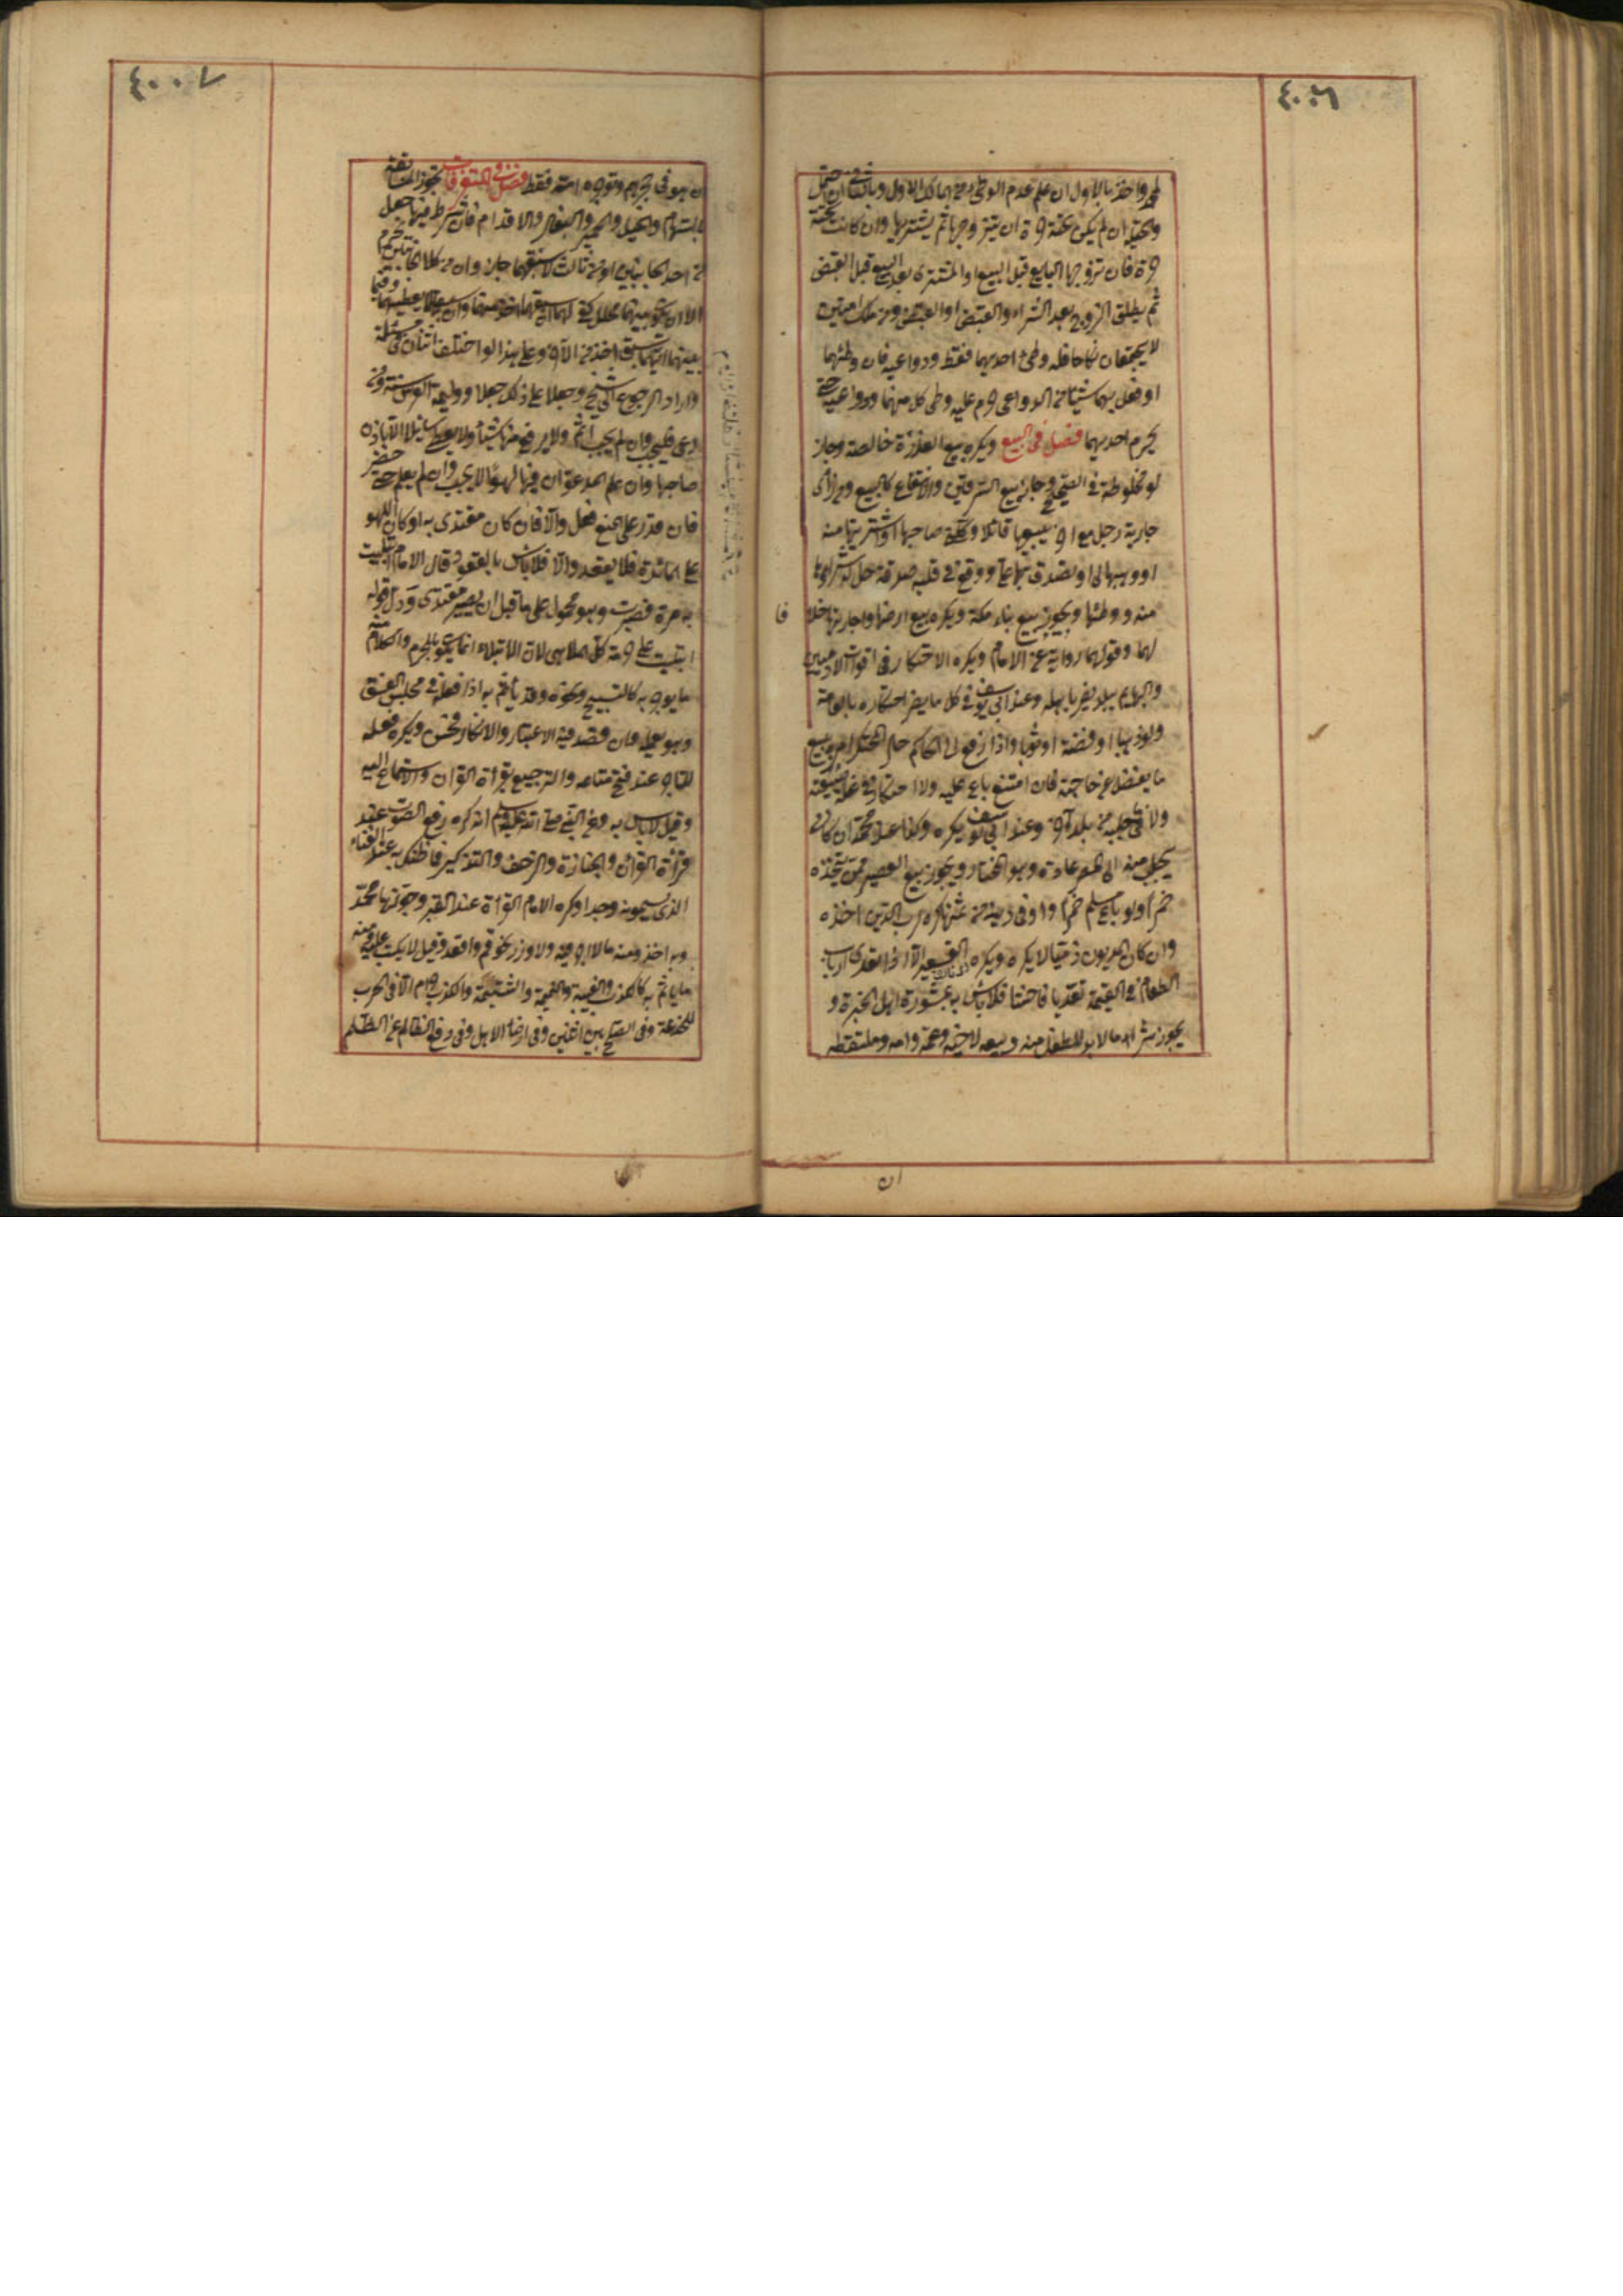 ٤٠٠٦
واخذ بالاول ان علم عدم الوطئ من المالك الاول وبالثاني ان احتمل
والحيلة ان لم يكن تحته حرة ان يتزوجها ثم يشتريها وان كانت تحته
حرة فان تزوجها البايع قبل البيع او المشترى بعد البيع قبل القبض
ثم يطلق الزوج بعد الشراء والقبض او القبض ومن ملك امتين
لا يجتمعان نكاحا فله وطئ احديهما فقط ودواعيه فان وطئهما
او فعل بهما شيئا من الدواعى حرم عليه وطى كل منهما ودواعيه حتى
يحرم احديهما فصل فى البيع ويكره بيع العذرة خالصة وجاز
لو مخلوطة فى الصحيح وجاز بيع السرقين والانتفاع كالبيع ومن رأى
جارية رجل مع اخر يبيعها قائلا وكلنى صاحبها او اشتريتها منه
او وهبها لى او تصدق بها على ووقع فى قلبه صدقه حل له شراؤها
منه ووطئها ويجوز بيع بناء مكة ويكره بيع ارضها واجارتها خلا
فا
لهما وقولهما رواية عن الامام ويكره الاحتكار فى اقوات الادميين
والبهايم ببلد يضر باهله وعند ابى يوسف فى كل ما يضر احتكاره بالعامة
ولو ذهبا او فضة او ثوبا واذا رفع الى الحاكم حال المحتكر امره ببيع
ما يفضل عن حاجته فان امتنع باع عليه ولا احتكار فى غلة ضيعته
ولا فى ما جلبه من بلد آخر وعند ابى يوسف يكره وكذا عند محمد ان كان
يجلب منه الى المصر عادة وهو المختار ويجوز بيع العصير ممن يتخذه
خمرا ولو باع مسلم خمرا واوفى دينه من ثمنها كره لرب الدين اخذه
وان كان المديون ذميا لا يكره ويكره التسعير الا اذا تعدى ارباب
الطعام فى القيمة تعديا فاحشا فلا بأس به بمشورة اهل الخبرة و
يجوز شراء ما لا بد للطفل منه وبيعه لاخيه وعمه وامه وملتقطه
ان
٤٠٠٧
ان هو فى حجرهم وتوجره امه فقط فصل فى المتفرقات تجوز المسابقة
بالسهام والخيل والحمير والبغال والاقدام فان شرط فيها جعل
من احد الجانبين او من ثالث لاسبقهما جاز وان من كلا الجانبين يحرم
الا ان يكون بينهما محلل كفؤ لهما ان سبقهما اخذ منهما وان سبقاه لا يعطيهما وفيما
بينهما ايهما سبق اخذ من الآخر وعلى هذا لو اختلف اثنان فى مسئلة
وارادا الرجوع الى شيخ وجعلا على ذلك جعلا ووليمة العرس سنة ومن
دعى فليجب وان لم يجب اثم ولا يرفع منها شيئا ولا يعطى سائلا الا باذن
صاحبها وان علم المدعو ان فيها لهوا لا يجيب وان لم يعلم حتى حضر
فان قدر على المنع فعل والا فان كان مقتدى به او كان اللهو
على المائدة فلا يقعد والا فلا بأس بالقعود قال الامام ابتليت
به مرة فصبرت وهو محمول على ما قبل ان يصير مقتدى ودل قوله
ابتليت على حرمة كل الملاهى لان الابتلاء انما يكون بالمحرم والكلام منه
ما يوجر به كالتسبيح ونحوه وقد يأثم به اذا فعله فى مجلس الفسق
وهو يعلمه فان قصد فيه الاعتبار والانكار فحسن ويكره فعله
للتاجر عند فتح متاعه والترجيع بقراءة القران والاستماع اليه
وقيل لا بأس به وعن النبى صلى الله عليه وسلم انه كره رفع الصوت عند
قراءة القران والجنازة والزحف والتذكير فما ظنك به عند الغناء
الذى يسمونه وجدا وكره الامام القراءة عند القبر وجوزها محمد
وبه اخذ ومنه ما لا اجر فيه ولا وزر نحو قم واقعد وقيل لا يكتب عليه ومنه
ما يأثم به كالكذب والغيبة والنميمة والشتيمة والكذب حرام الا فى الحرب
للخدعة وفى الصلح بين اثنين وفى ارضاء الاهل وفى دفع الظالم عن الظلم